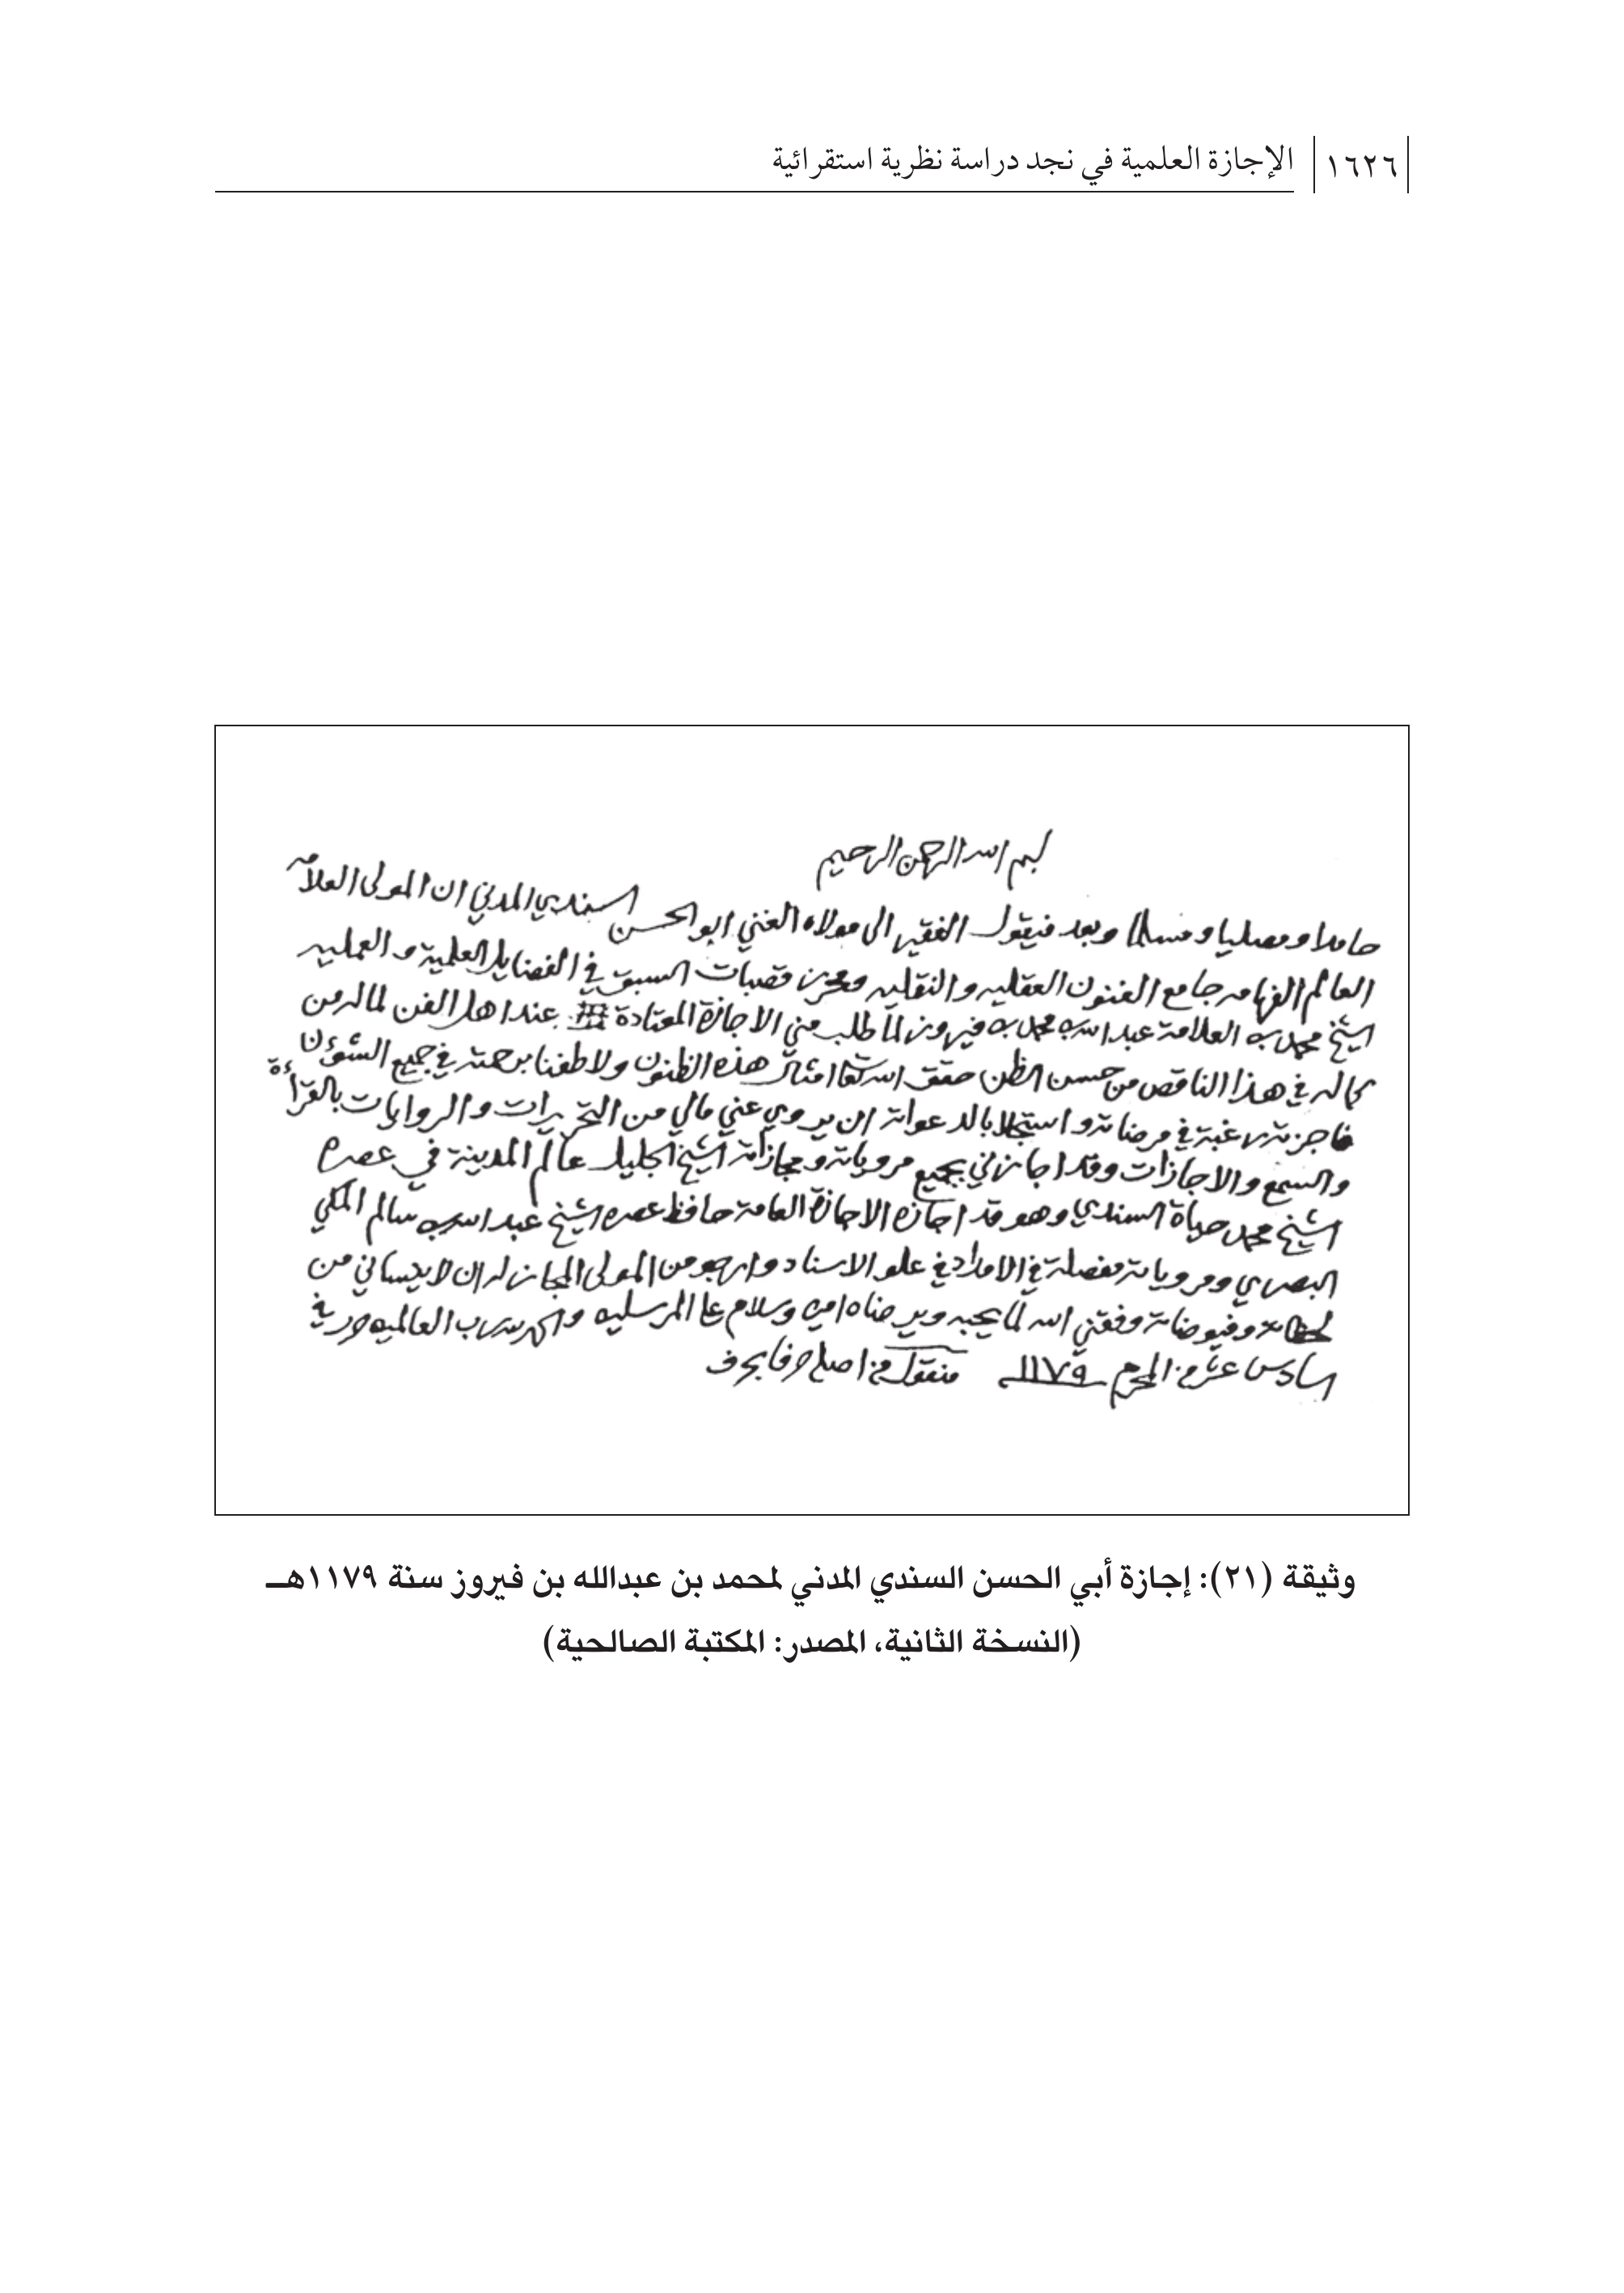 ١٦٢٦ الإجازة العلمية في نجد دراسة نظرية استقرائية
بسم الله الرحمن الرحيم
حامدا ومصليا ومسلما وبعد فيقول الفقير الى مولاه الغني ابو الحسن السندي المدني ان المولى العلامه
العالم الفهامه جامع الفنون العقليه والنقليه ومحرز قصبات السبق في الفضايل العلمية والعمليه
الشيخ محمد بن العلامة عبد الله بن محمد بن فيروز لما طلب مني الاجازة المعتادة عند اهل الفن لما له من
كماله في هذا الناقص من حسن الظن حقق الله تعا امثال هذه الظنون ولاطفنا برحمته في جميع الشؤن
فاجزته رغبة في مرضاته واستجلابا لدعواته ان يروي عني مالي من التحريرات والروايات بالقرأءة
والسمع والاجازات وقد اجازني بجميع مروياته ومجازاته الشيخ الجليل عالم المدينة في عصره
الشيخ محمد حياة السندي وهو قد اجازه الاجازة العامة حافظ عصره الشيخ عبد الله بن سالم المكي
البصري ومروياته مفصلة في الامداد في علو الاسناد وارجو من المولى المجاز له ان لا ينساني من
وفيوضاته وفقني الله لما يحبه ويرضاه امين وسلام على المرسلين والحمد لله رب العالمين حرر في
السادس عشر من المحرم ١١٧٩ منقول من اصله حرفا بحرف
وثيقة (٢١): إجازة أبي الحسن السندي المدني لمحمد بن عبدالله بن فيروز سنة ١١٧٩هـ
(النسخة الثانية، المصدر: المكتبة الصالحية)